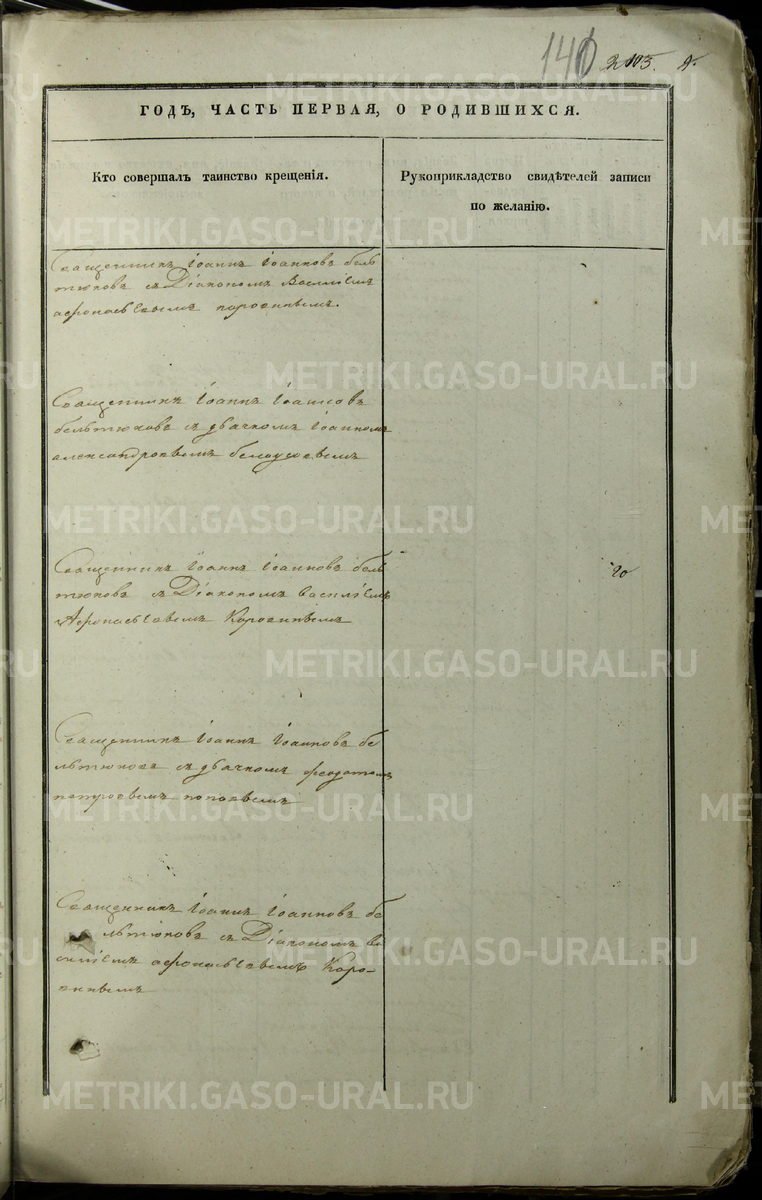 140
ГОДЪ, ЧАСТЬ ПЕРВАЯ, О РОДИВШИХСЯ.
Кто совершалъ таинство крещенія.
Рукоприкладство свидѣтелей записи
по желанію.
Священникъ Іоаннъ Іоанновъ бель
тюковъ съ Діакономъ Василіемъ
афонасьевымъ
Священникъ Іоаннъ Іоанновъ
бельтюковъ съ дьячкомъ Іоанномъ
александровымъ
Священникъ Іоаннъ Іоанновъ бель
тюковъ съ Діакономъ василіемъ
Афонасьевымъ
20
Священникъ Іоаннъ Іоанновъ бе
льтюковъ съ дьячкомъ феодотомъ
петровымъ поповымъ
Священникъ Іоаннъ Іоанновъ бе
льтюковъ съ Діакономъ ва
силіемъ афонасьевымъ
METRIKI.GASO-URAL.RU